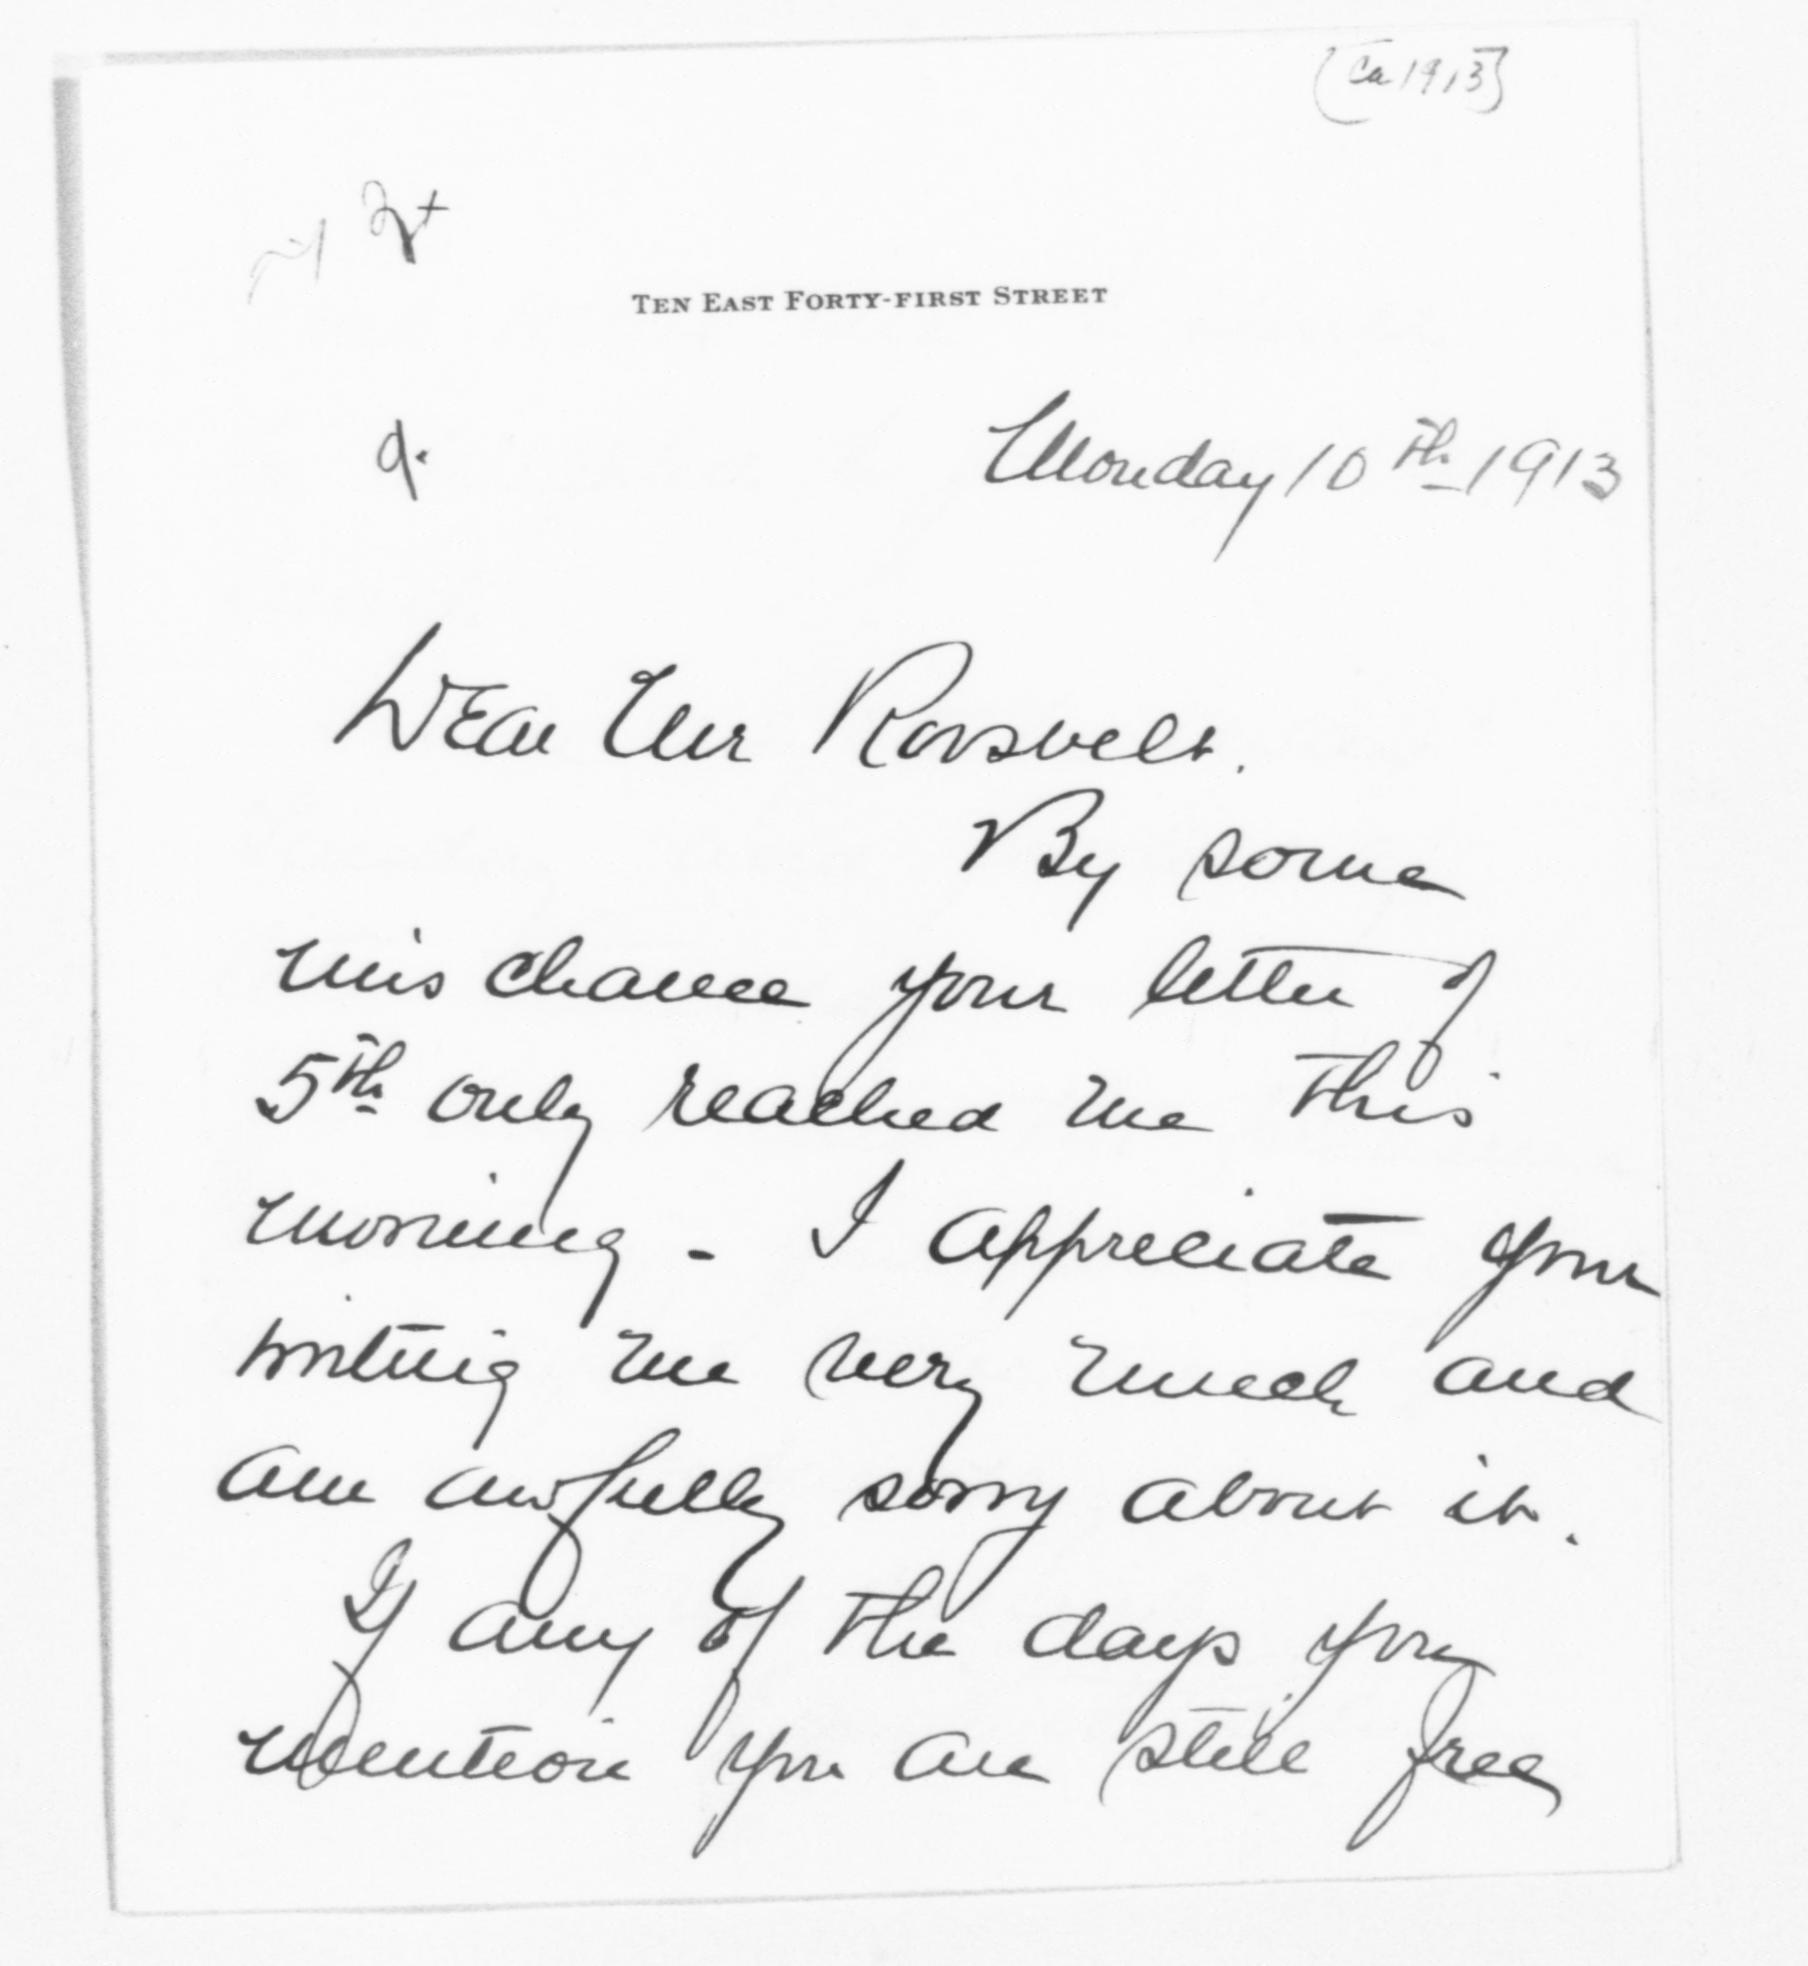 [Ca 1913]
TEN EAST FORTY-FIRST STREET
Monday 10th 1913
Dear Mr Roosvelt.
By some
mischance your letter of
5th only reached me this
morning - I appreciate your
writing me very much and
am awfully sorry about it.
If any of the days you
mention you are still free